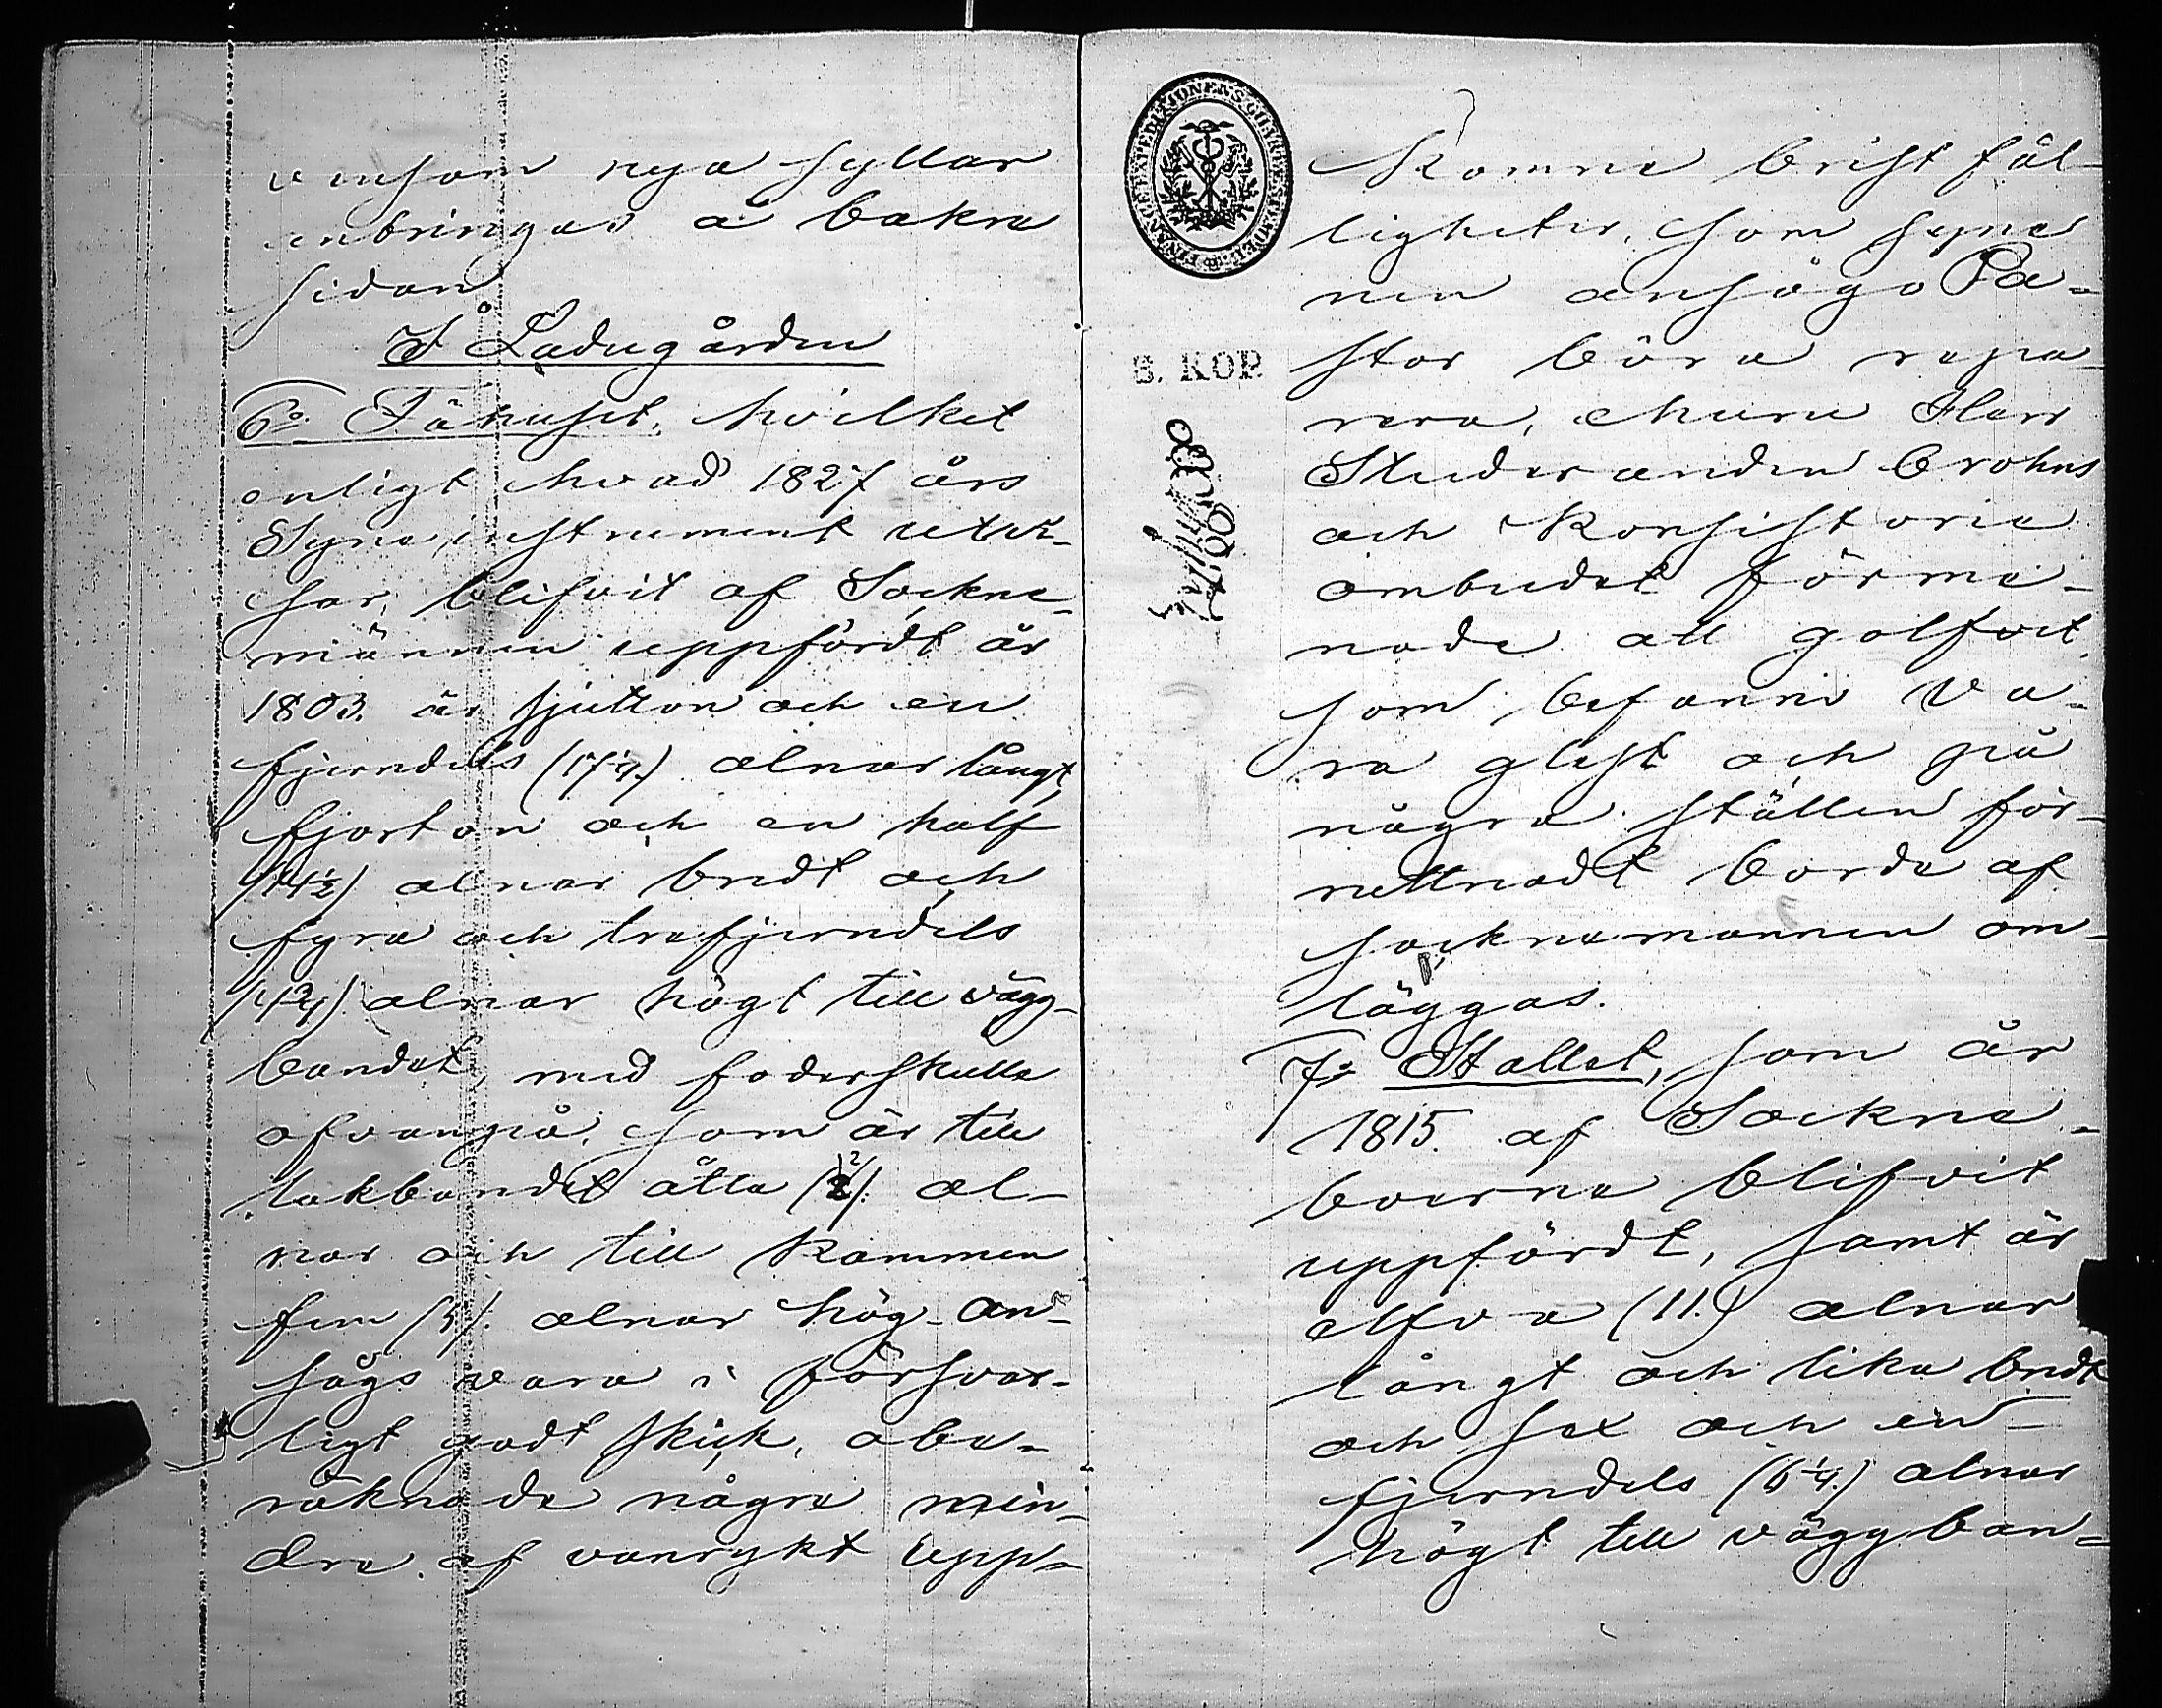 vensom nya syllar
anbringas å bakre
sidan
I Ladugården
6o Fähuset, hvilket
enligt hvad 1827 års
Syneinstrument utvi-
sar, blifvit af Sockne-
männen uppfördt år
1803. är sjutton och en
fjerndels (17 1/4.) alnar långt,
fjorton och en half
(14 1/2) alnar bredt och
fyra och trefjerndels
(4 3/4) alnar högt till vägg-
bandet, med foderskulle
ofvanpå, som är till
takbandet åtta (2/8). al-
nar och till kammen
fem (5). alnar hög- an-
sågs vara i försvar-
ligt godt skick, obe-
räknade några min-
dre af vanrykt upp-
komne bristfäl-
ligheter, som syne
men ansågo Pa-
stor böra repa-
rera, ehuru Herr
Studeranden Crohns
och Konsistorie
ombudet förme-
nade att golfvet,
som befanns va-
ra glest och på
några ställen för-
ruttnadt borde af
socknemannen om-
läggas.
7o Stallet, som år
1815. af Sockne-
boerne blifvit
uppfördt, samt är
elfva (11.) alnar
långt och lika bredt
och sex och en
fjerndels (6 1/4.) alnar
högt till väggban-
FINANCEEXPEDITIONENS
B. KOP.